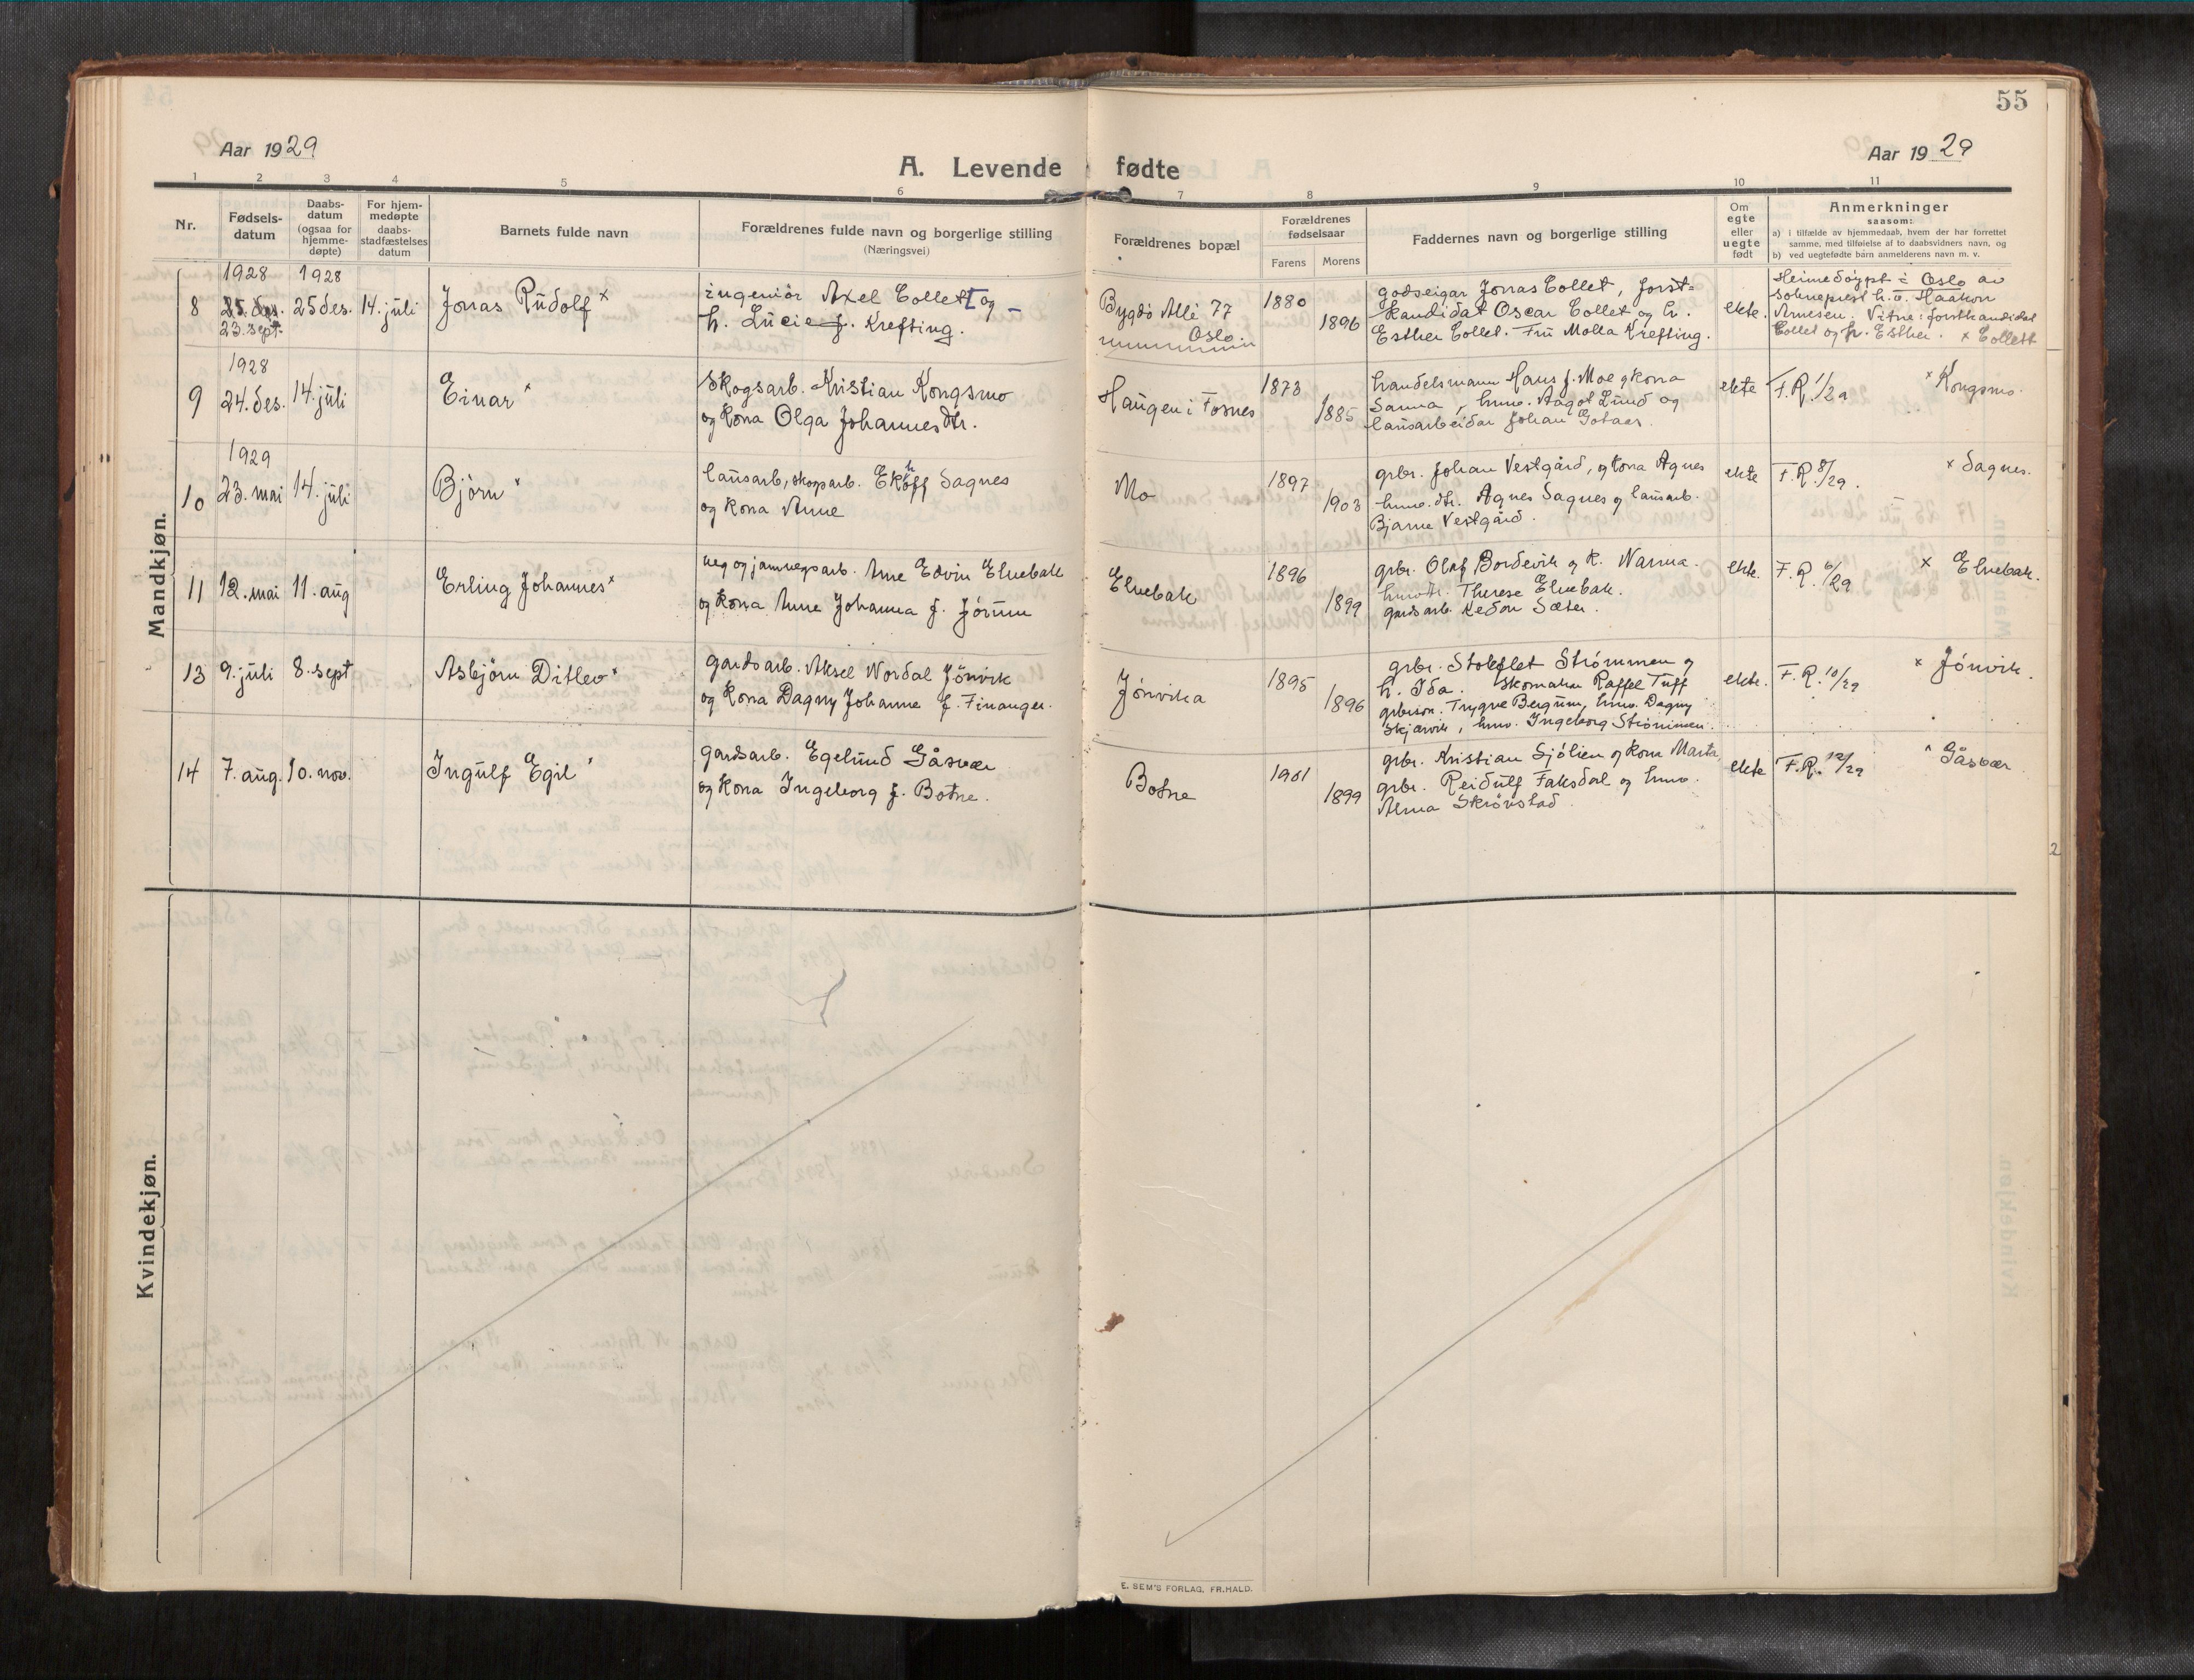 55
Aar 1929
A. Levende fødte
Aar 1929
1 2 3 4 5 6 7 8 9 10 11
Nr.
Fødsels-
datum
Daabs-
datum
(ogsaa for
hjemme-
døpte)
For hjem-
medøpte
daabs-
stadfæstelses
datum
Barnets fulde navn
Forældrenes fulde navn og borgerlige stilling
(Næringsvei)
Forældrenes bopæl
Forældrenes
fødselsaar
Farens Morens
Faddernes navn og borgerlige stilling
Om
egte
eller
uegte
født
Anmerkninger
saasom:
a) i tilfælde av hjemmedaab, hvem der har forrettet
samme, med tilføielse af to daabsvidners navn, og
b) ved uegtefødte barn anmelderens navn m. v.
Mandkjøn.
1928 1928
8 25. des. 25 des. 14. juli
23. sept.
Jonas Rudolf x
ingeniör Axel Collett og
h. Lucie f. Krefting.
Bygdö Allé 77
Oslo.
1880
1896
godseigar Jonas Collet, forst=
kandidat Oscar Collet og h.
Esther Collet. Fru Molla Krefting.
ekte.
Heimedöypt i Oslo av
sokneprest h. v. Haakon
Arnesen. Vitne: forstkandidat
Collet og fr. Esther. x Collett
1928
9 24. des. 14. juli
Einar x
Skogsarb. Kristian Kongsmo
og kona Olga Johannesdtr.
Haugen i Fosnes
1873
1885
handelsmann Hans J. Moe og kona
Sanna, hmo. Aagot Lund og
lausarbeidar Johan Gotaas.
ekte
F.R. 1/29
x Kongsmo.
1929
10 23. mai 14. juli
Björn x
lausarb, skogsarb. Ekhoff Sagnes
og kona Anne
Mo
1897
1903
grbr. Johan Vestgård, og kona Agnes
hmo. dtr. Agnes Sagnes og lausarb.
Bjarne Vestgård.
ekte
F.R. 8/29.
x Sagnes.
11 12. mai 11. aug
Erling Johannes x
veg og jarnvegsarb. Arne Edvin Elvebakk
og kona Anne Johanna f. Jörum
Elvebakk
1896
1899
grbr. Olaf Bordevik og k. Nanna.
hmodtr. Therese Elvebakk.
gardsarb. Kedon Sæter.
ekte.
F.R. 6/29
x Elvebakk.
13 9. juli 8. sept
Asbjörn Ditlev x
gardsarb. Aksel Nordal Jönvik
og kona Dagny Johanne f. Finanger.
Jönvika
1895
1896
grbr. Stokflet Strömmen og
h. Ida. Skomakar Raffel Tuff
grbrson. Trygve Bergum, hmo. Dagny
Skjærvik, hmo. Ingeborg Strömmen.
ekte.
F.R. 10/29
x Jönvik.
14 7. aug. 10. nov.
Ingulf Egil x
gardsarb. Egelund Gåsvær
og kona Ingeborg f. Botne.
Botne
1901
1899
grbr. Kristian Sjölien og kona Marta
grbr. Reidulf Faksdal og hmo.
Alma Skrövstad.
ekte
F.R. 12/29
x Gåsvær
Kvindekjøn.
E. SEM'S FORLAG, FR.HALD.